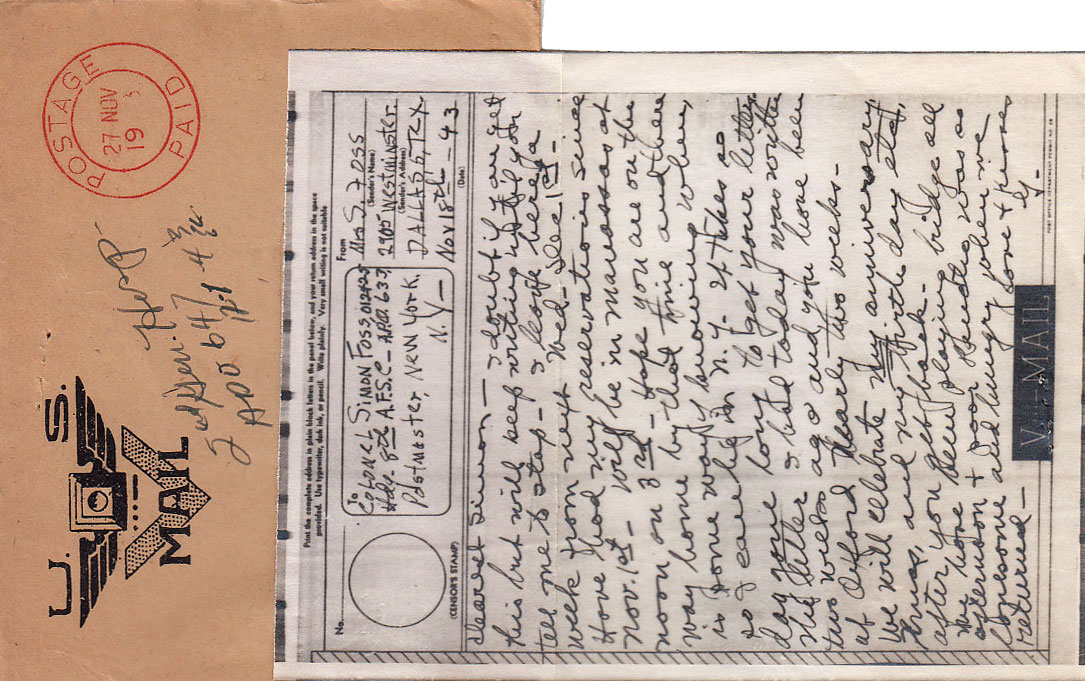 U. S.
MAIL
POSTAGE
PAID
27 NOV
19
Hosp
APO 647
Print the complete address in plain block letters in the panel below, and your return address in the space
provided. Use typewriter, dark ink, or pencil. Write plainly. Very small writing is not suitable.
No.
(CENSOR'S STAMP)
To
Colonel SIMON FOSS, 012425
Hdq. 8th A.F.S.C - A.P.O. 633
Postmaster, New York,
N. Y—
From
Mrs. S. Foss
(Sender's Name)
2905 Westminster
(Sender's Address)
DALLAS 5, Tex
Nov 18th - 43
(Date)
dearest Simon — I doubt if you get
this but will keep writing until you
tell me to stop. I leave here a
week from next Wed. Dec 1st.
Have had my reservations since
Nov. 1st — Will be in Manassas at
noon on 3rd — Hope you are on the
way home by that time and there
is some way of knowing when,
so I can be in N.Y. It takes so
long to get your letters
I had today was written
two weeks ago and you have been
at Oxford nearly two weeks —
We will celebrate my anniversary
Xmas, and my birthday etc,
after you get back.
We have been playing bridge all
afternoon + poor was so
lonesome and hungry when we
returned — Love + kisses
V···— MAIL